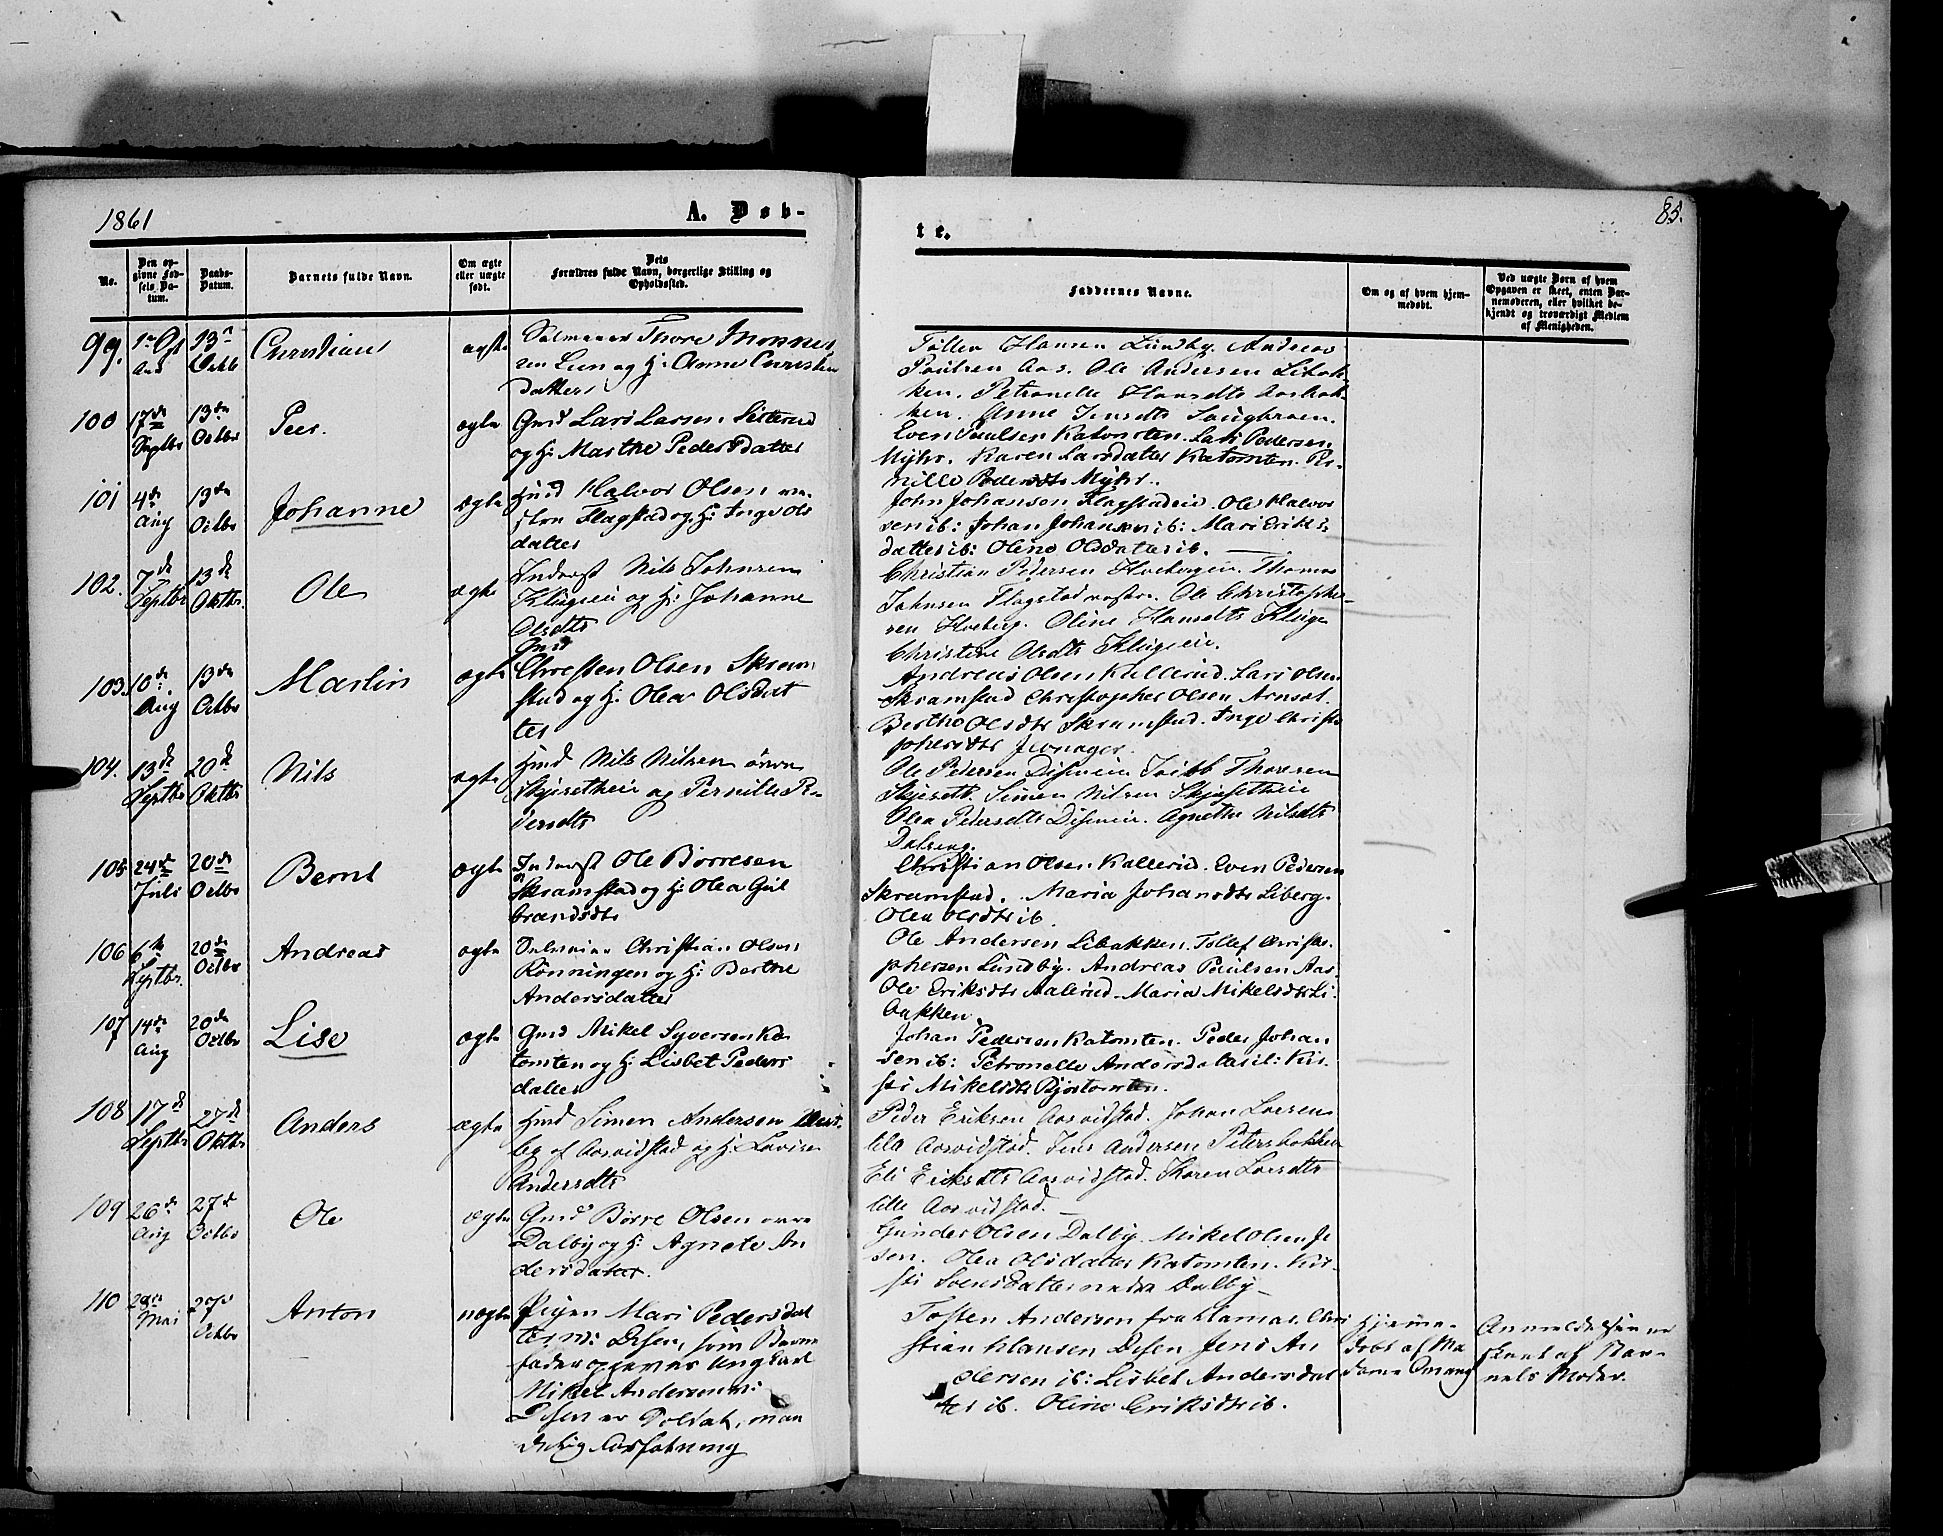 1861
A. Døb-
te.
85.
No.
Den op-
givne Fød-
sels Da-
tum.
Daabs-
Datum.
Barnets fulde Navn.
Om ægte
eller uægte
født.
Dets
Forældres fulde Navn, borgerlige Stilling og
Opholdssted.
Faddernes Navne.
Om og af hvem hjem-
medøbt.
Ved uægte Børn af hvem
Opgaven er skeet, enten Bar-
nemoderen, eller hvilket be-
kjendt og troværdigt Medlem
af Menigheden.
99.
13
Octb
Christian
ægte
Thore
og H: Anne Christen
datter
Hansen Lundby. Andreas
Paulsen Aas. Ole Andersen Libak-
ken. Petronelle Hansdtr
ken. Anne Jensdtr
100
17de
Septbr
13de
Octbr
Peer.
ægte
Gmd Lars Larsen
og H: Marthe Pedersdatter
Even Paulsen Katomten. Lars Pedersen
Myhr. Karen Larsdatter Katomten. Per-
nille Pedersdtr Myhr.
101
4de
Aug
13de
Octbr
Johanne
ægte
Huusmd Halvor Olsen
Flagstad og H: Inge Ols
datter
John Johansen Flagstadeie. Ole Halvor
sen ib: Johan Johansen ib: Mari Eriks
datter ib: Oline Olsdatter ib.
102.
7de
Septbr
13de
Oktbr.
Ole
ægte
Inderst Nils Johnsen
Klugeeie og H: Johanne
Olsdtr
Christian Pedersen Hoebergeie. Thomas
Johnsen Flagstad. Ole Christophe-
sen Hoeberg. Oline Hansdtr Kluge
Christine Olsdtr Klugeeie.
103.
10de
Aug
13de
Octbr
Martin
ægte
Gmd
Christen Olsen Skram
stad og H: Olea Olsdat
ter
Andreas Olsen Kallerud. Lars Olsen
Skramstad Christopher Olsen Arnset.
Berthe Olsdtr Skramstad. Inge Christo
phersdtr Jevnager.
104.
13de
Septbr
20de
Oktbr
Nils
ægte
Hmd Nils Nilsen
Skjesetheie og Pernille Pe-
dersdtr
Ole Pedersen Diseneie Thoresen
Skjeset. Simen Nilsen Skjesetheie
Olea Pedersdtr Diseneie. Agnethe Nilsdtr
Dalseng.
105
24de
Juli
20de
Octbr
Bernt
ægte
Inderst Ole Børresen
Skramstad og H: Olea Gul
brandsdtr
Christian Olsen Kallerud. Even Pedersen
Skramstad. Maria Johansdtr Liberg.
Olea Olsdtr ib.
106
6te
Septbr.
20de
Octbr
Andreas
ægte
Christian Olsen
Rønningen og H: Berthe
Andersdatter
Ole Andersen Libakken. Tollef Christo-
phersen Lundby. Andreas Paulsen Aas.
Eriksdtr Aalerud. Maria Mikelsdtr Li-
bakken
107
14de
Aug
20de
Octbr
Lise
ægte
Gmd Mikel Syversen Ka
tomten og H: Lisbet Peders
datter
Johan Pedersen Katomten. Peder Johan
sen ib: Petronelle Andersdatter ib: Kir-
sti Mikelsdtr
108
17de
Septbr
27de
Oktbr
Anders
ægte
Hmd Simen Andersen
af Aasvidstad og H: Lovise
Andersdtr
Peder Eriksen Aasvidstad. Johan Larsen
lille Aasvidstad. Jens Andersen Petersbakken
Eli Eriksdtr Aasvidstad. Karen Larsdtr
lille Aasvidstad.
109
26de
Aug
27de
Octbr
Ole
ægte
Gmd Børre Olsen
Dalby og H: Agnete An
dersdatter.
Gunder Olsen Dalby. Mikel Olsen
Olea Olsdatter Katomten. Kir-
sti Svensdatter nedre Dalby
110
Mai
27de
Octbr
Anton
uægte
Pigen Mari Pedersdat
ter Disen, som Barne
fader opgives Ungkarl
Mikel Andersen
Disen er Soldat,
Tosten Andersen fra Hamar. Chri
stian Hansen Disen Jens An
dersen ib: Lisbet Andersdat
ter ib. Oline Eriksdtr ib.
Hjemme-
døbt af Ma
dame
Anmeldelsen er
skeet af Bar-
nets Moder.